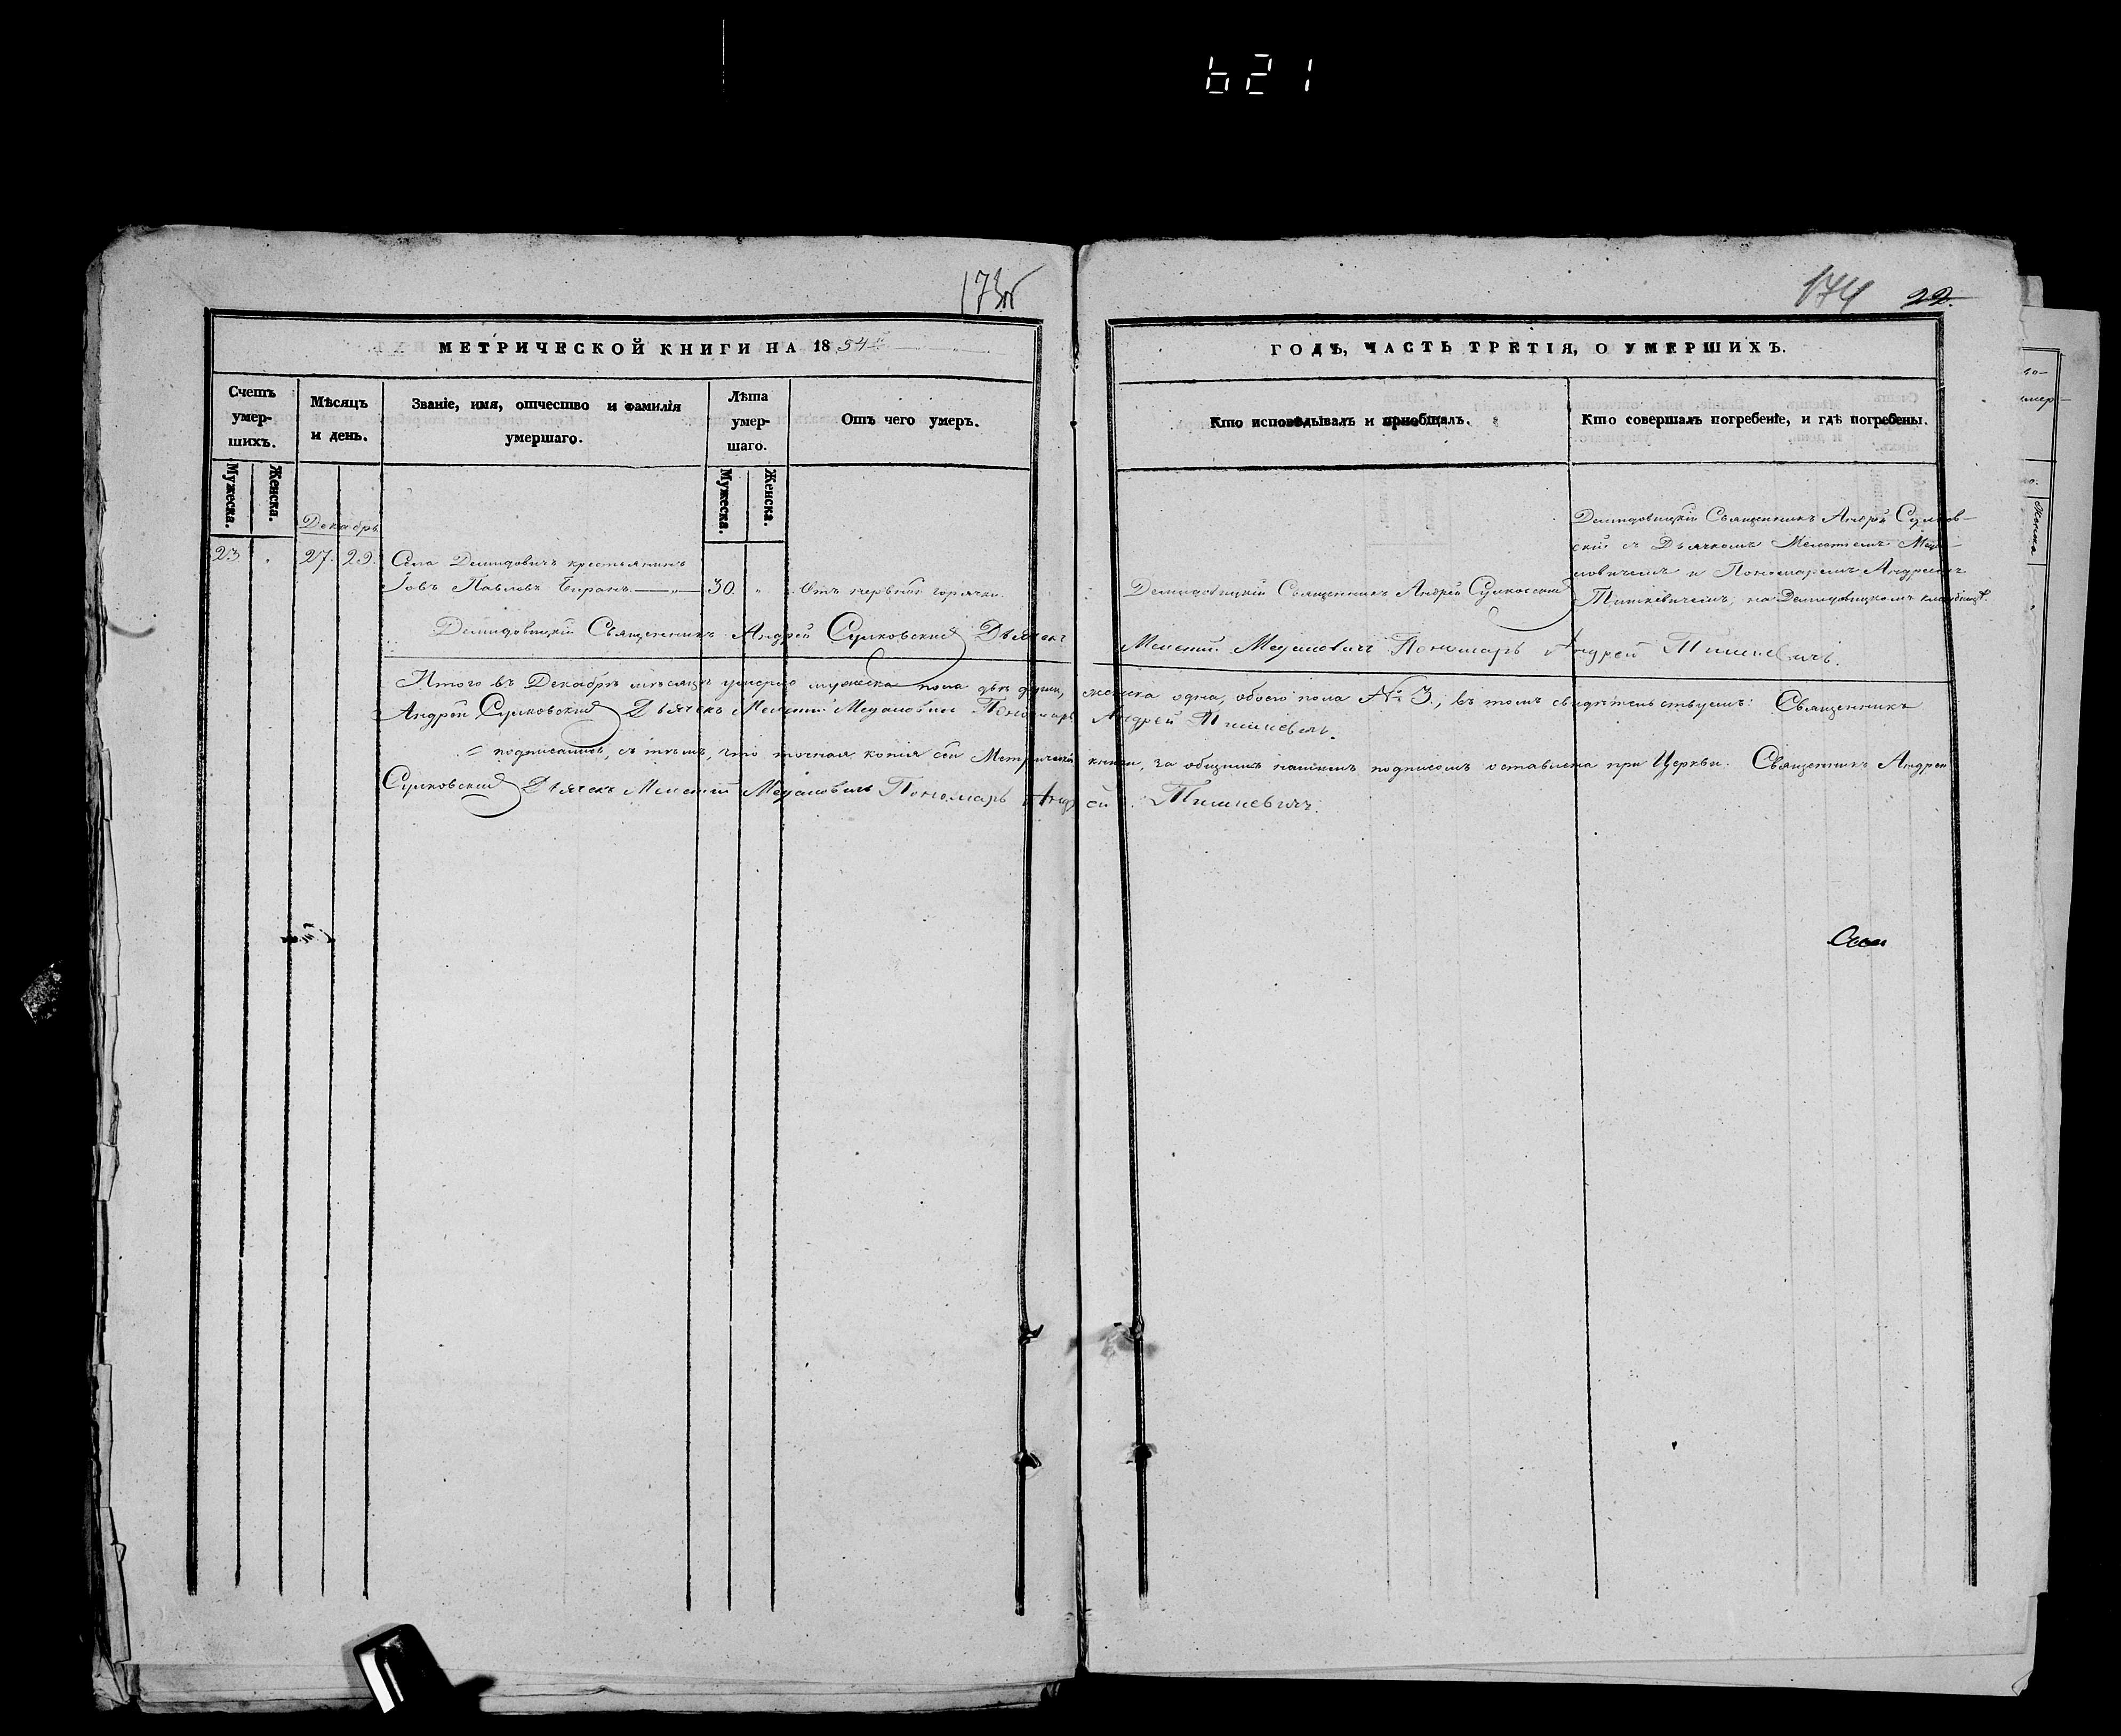 621
173об
174 22.
МЕТРИЧЕСКОЙ КНИГИ НА 1854й
ГОДЪ, ЧАСТЬ ТРЕТІЯ, О УМЕРШИХЪ.
Счетъ умер-
шихъ.
Мужеска.
Женска.
Мѣсяцъ
и день.
Званіе, имя, отчество и фамилія
умершаго.
Лѣта
умер-
шаго.
Мужеска.
Женска.
Отъ чего умеръ.
Кто исповѣдывалъ и приобщалъ.
Кто совершалъ погребеніе, и гдѣ погребены.
Декабрь
23 " 27. 29.
Села Демидовичъ крестьянинъ
Іовъ Павловъ
30. "
Отъ нервной горячки.
Демидовицкій Священникъ Андрей Сулковскій
Демидовицкій Священникъ Андрей Сулков-
скій съ Дьячкомъ Мелетіемъ
и Пономаремъ Андреемъ
Тишкевичемъ, на Демидовицкомъ кладбищѣ.
Демидовицкій Священникъ Андрей Сулковскій Дьячекъ Мелетій Пономарь Андрей Тишкевичъ.
Итого въ Декабрѣ мѣсяцѣ умерло мужеска пола двѣ души, женска одна, обоего пола № 3, въ томъ свидѣтельствуемъ: Священникъ
Андрей Сулковскій Дьячекъ Мелетій Пономарь Андрей Тишкевичъ.
подписались, съ тѣмъ, что точная копія сей Метрической книги, за общимъ нашимъ подписомъ оставлена при Церкви. Священникъ Андрей
Сулковскій Дьячекъ Мелетій Пономарь Андрей Тишкевичъ.